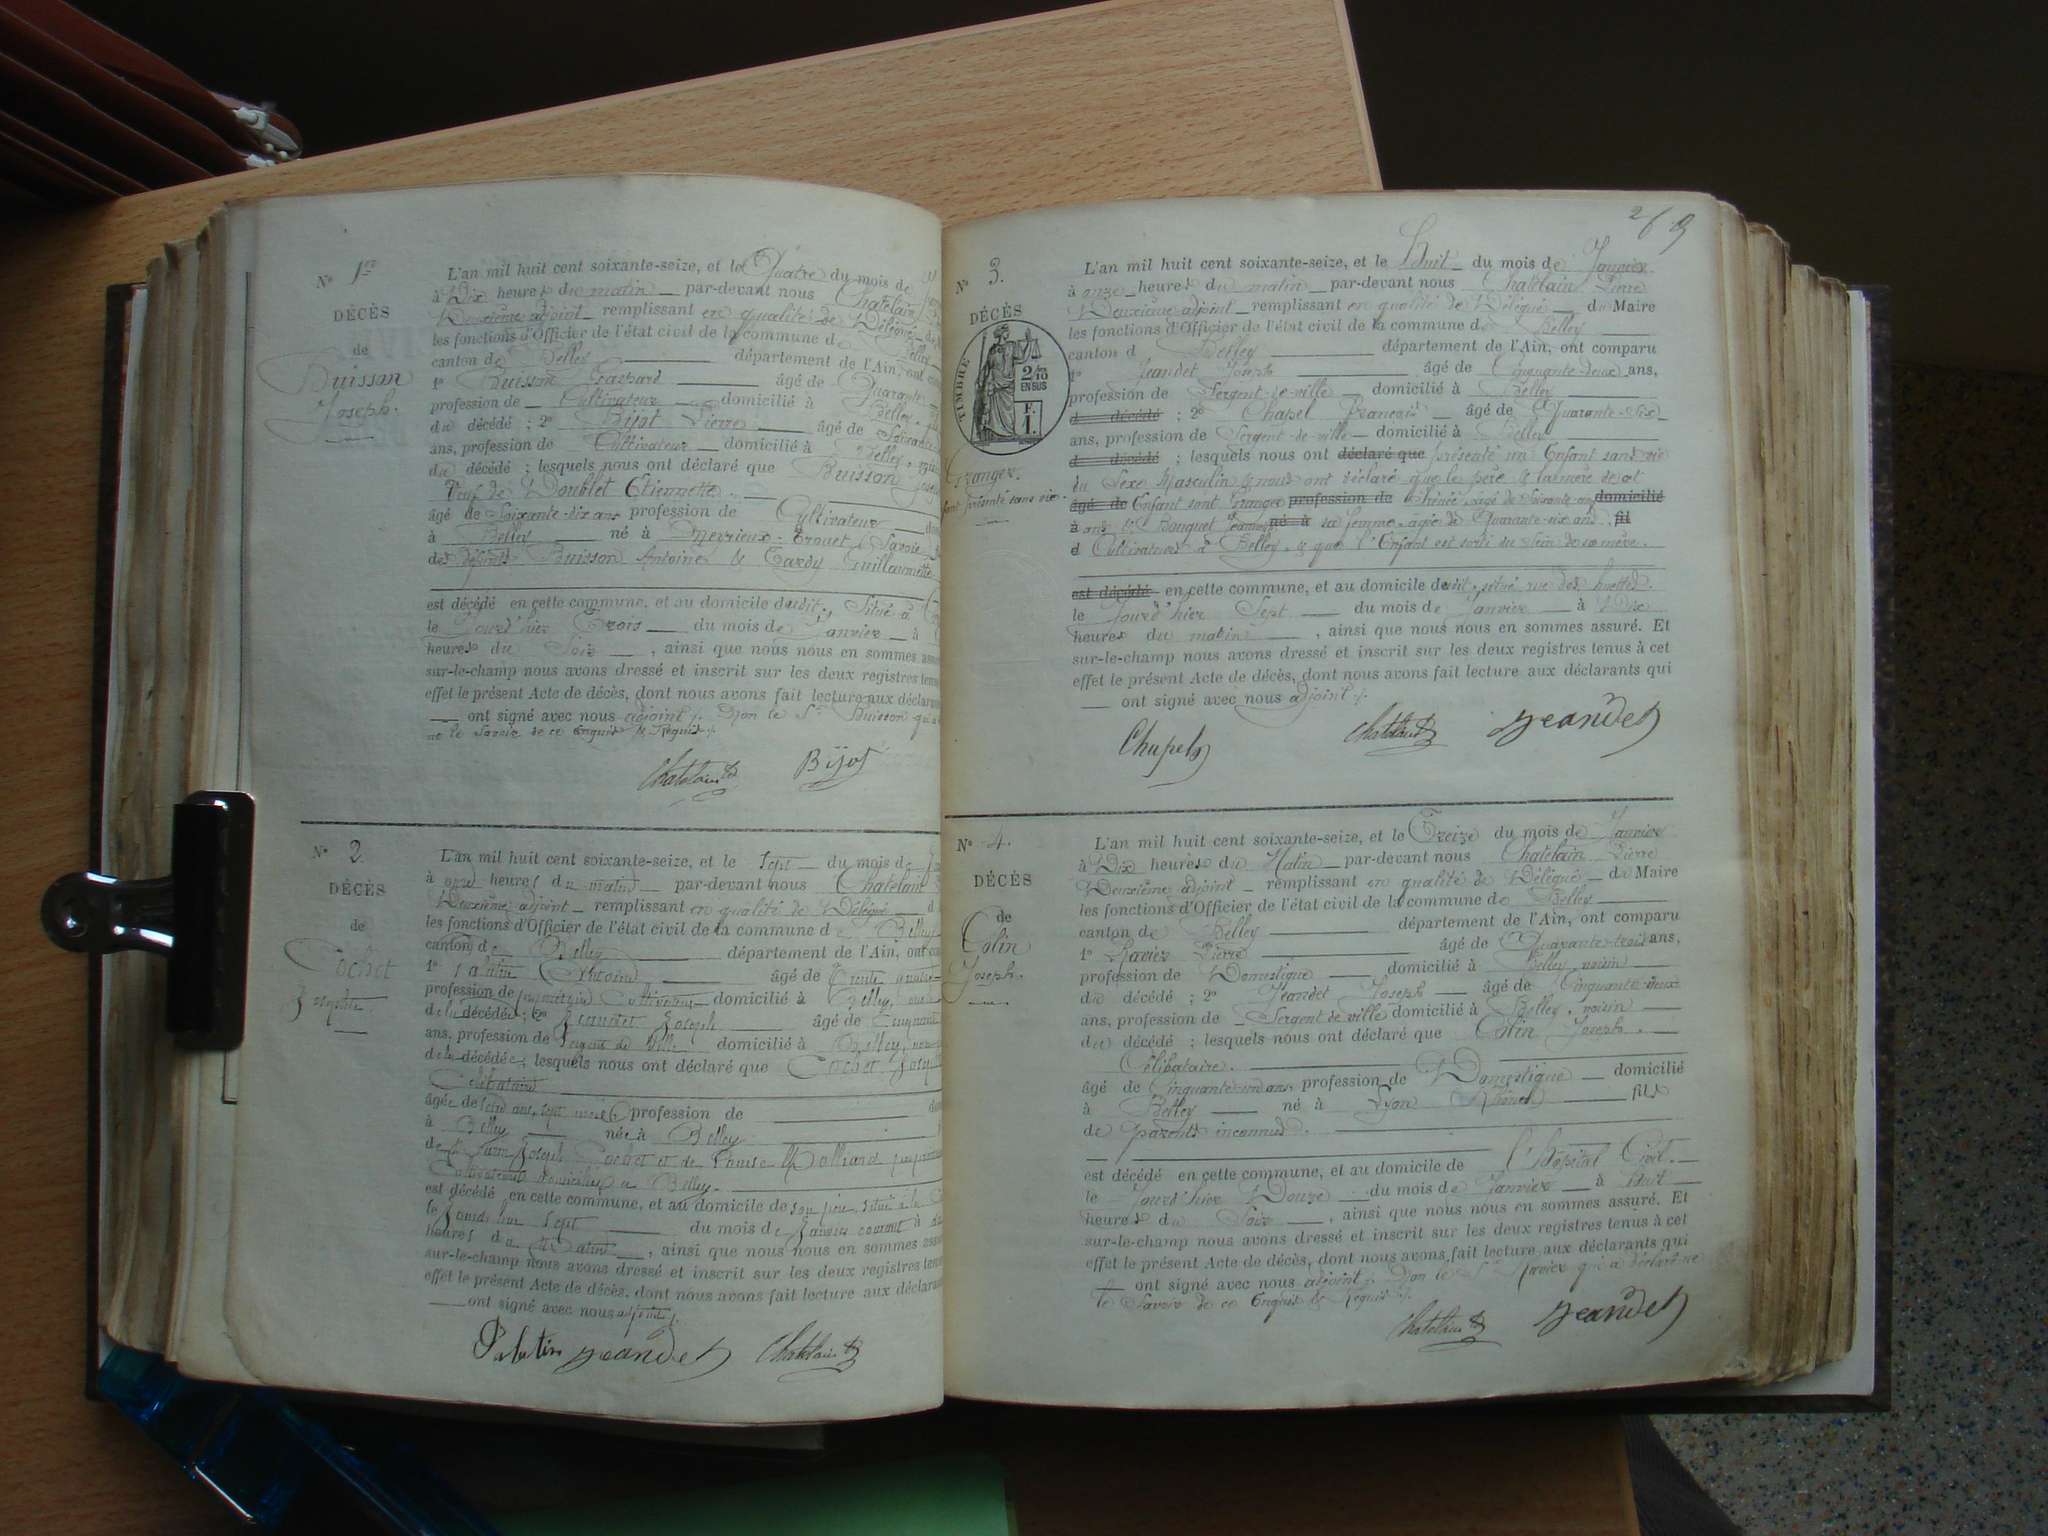 N° 1er
DÉCÈS
de
Buisson
Joseph.
L'an mil huit cent soixante-seize, et le Quatre du mois de
à Dix heures du matin par-devant nous Chatelain
Deuxième adjoint remplissant en qualité de Délégué
les fonctions d'Officier de l'état civil de la commune de Belley
canton de Belley département de l'Ain, ont
1° Buisson Gaspard âgé de Quarante
profession de Cultivateur domicilié à Belley
du décédé ; 2° Bijot Pierre âgé de Soixante
ans, profession de Cultivateur domicilié à Belley
du décédé ; lesquels nous ont déclaré que Buisson Joseph
Veuf de Doublet Etiennette.
âgé de Soixante-dix ans profession de Cultivateur
à Belley né à Meyrieux-Trouet (Savoie)
des défunts Buisson Antoine & Tardy Guillaumette
est décédé en cette commune, et au domicile dudit, Situé à
le Jourd'hier Trois du mois de Janvier à
heures du Soir, ainsi que nous nous en sommes
sur-le-champ nous avons dressé et inscrit sur les deux registres
effet le présent Acte de décès, dont nous avons fait lecture aux
ont signé avec nous adjoint Non le Sr Buisson qui a
ne le Savoir de ce Enquis & Requis
Chatelain Bijot
N° 2.
DÉCÈS
de
Cochet
L'an mil huit cent soixante-seize, et le Sept du mois de
à onze heures du matin par-devant nous Chatelain
Deuxième adjoint remplissant en qualité de Délégué
les fonctions d'Officier de l'état civil de la commune de Belley
canton de Belley département de l'Ain, ont
1° Palatin Antoine âgé de Trente quatre
profession de propriétaire Cultivateur domicilié à Belley,
de la décédée ; 2° Jeandet Joseph âgé de Cinquante
ans, profession de Sergent de Ville domicilié à Belley,
de la décédée ; lesquels nous ont déclaré que Cochet
Célibataire
âgée de ans, sept mois profession de
à Belley née à Belley
de Joseph Cochet et de Louise
Cultivateurs domiciliés à Belley.
est décédé en cette commune, et au domicile de son père, situé à la
le Jourd'hui Sept du mois de Janvier courant à
heures du Matin, ainsi que nous nous en sommes
sur-le-champ nous avons dressé et inscrit sur les deux registres
effet le présent Acte de décès, dont nous avons fait lecture aux
ont signé avec nous adjoint
Palatin Jeandet Chatelain
269
N° 3.
DÉCÈS
TIMBRE
2/10
EN SUS
F.
1.
Granger.
Enfant présenté sans vie.
L'an mil huit cent soixante-seize, et le Huit du mois de Janvier
à onze heures du matin par-devant nous Chatelain Pierre
Deuxième adjoint remplissant en qualité de Délégué du Maire
les fonctions d'Officier de l'état civil de la commune de Belley
canton d Belley département de l'Ain, ont comparu
1° Jeandet Joseph âgé de Cinquante-deux ans,
profession de Sergent-de-ville domicilié à Belley
d décédé ; 2° Chapel François âgé de Quarante-Six
ans, profession de Sergent-de-ville domicilié à Belley
d décédé ; lesquels nous ont déclaré que présenté un Enfant sans vie
du Sexe Masculin & nous ont déclaré que le père & la mère de cet
âgé de Enfant sont Granger profession de Irénée, âgé de Soixante cinq domicilié
à ans & Bouquet Jeanne né à sa femme, agée de Quarante-six ans, fil
d Cultivateurs à Belley, & que l'Enfant est sorti du Sein de sa mère.
est décédé en cette commune, et au domicile dudit, situé rue des
le Jourd'hier Sept du mois de Janvier à Dix
heures du matin, ainsi que nous nous en sommes assuré. Et
sur-le-champ nous avons dressé et inscrit sur les deux registres tenus à cet
effet le présent Acte de décès, dont nous avons fait lecture aux déclarants qui
ont signé avec nous adjoint
Chapel Chatelain Jeandet
N° 4.
DÉCÈS
de
Colin
Joseph.
L'an mil huit cent soixante-seize, et le Treize du mois de Janvier
à Dix heures du Matin par-devant nous Chatelain Pierre
Deuxième adjoint remplissant en qualité de Délégué du Maire
les fonctions d'Officier de l'état civil de la commune de Belley
canton de Belley département de l'Ain, ont comparu
1° Pierre âgé de Quarante-trois ans,
profession de Domestique domicilié à Belley, voisin
du décédé ; 2° Jeandet Joseph âgé de Cinquante-deux
ans, profession de Sergent de ville domicilié à Belley, voisin
du décédé ; lesquels nous ont déclaré que Colin Joseph.
Célibataire.
âgé de Cinquante-un ans profession de Domestique domicilié
à Belley né à Lyon (Rhône) fils
de parents inconnus.
est décédé en cette commune, et au domicile de l'Hôpital Civil.
le Jourd'hier Douze du mois de Janvier à Huit
heures du Soir, ainsi que nous nous en sommes assuré. Et
sur-le-champ nous avons dressé et inscrit sur les deux registres tenus à cet
effet le présent Acte de décès, dont nous avons fait lecture aux déclarants qui
ont signé avec nous adjoint, Non le Sr qui a déclaré ne
le Savoir de ce Enquis & Requis
Chatelain Jeandet